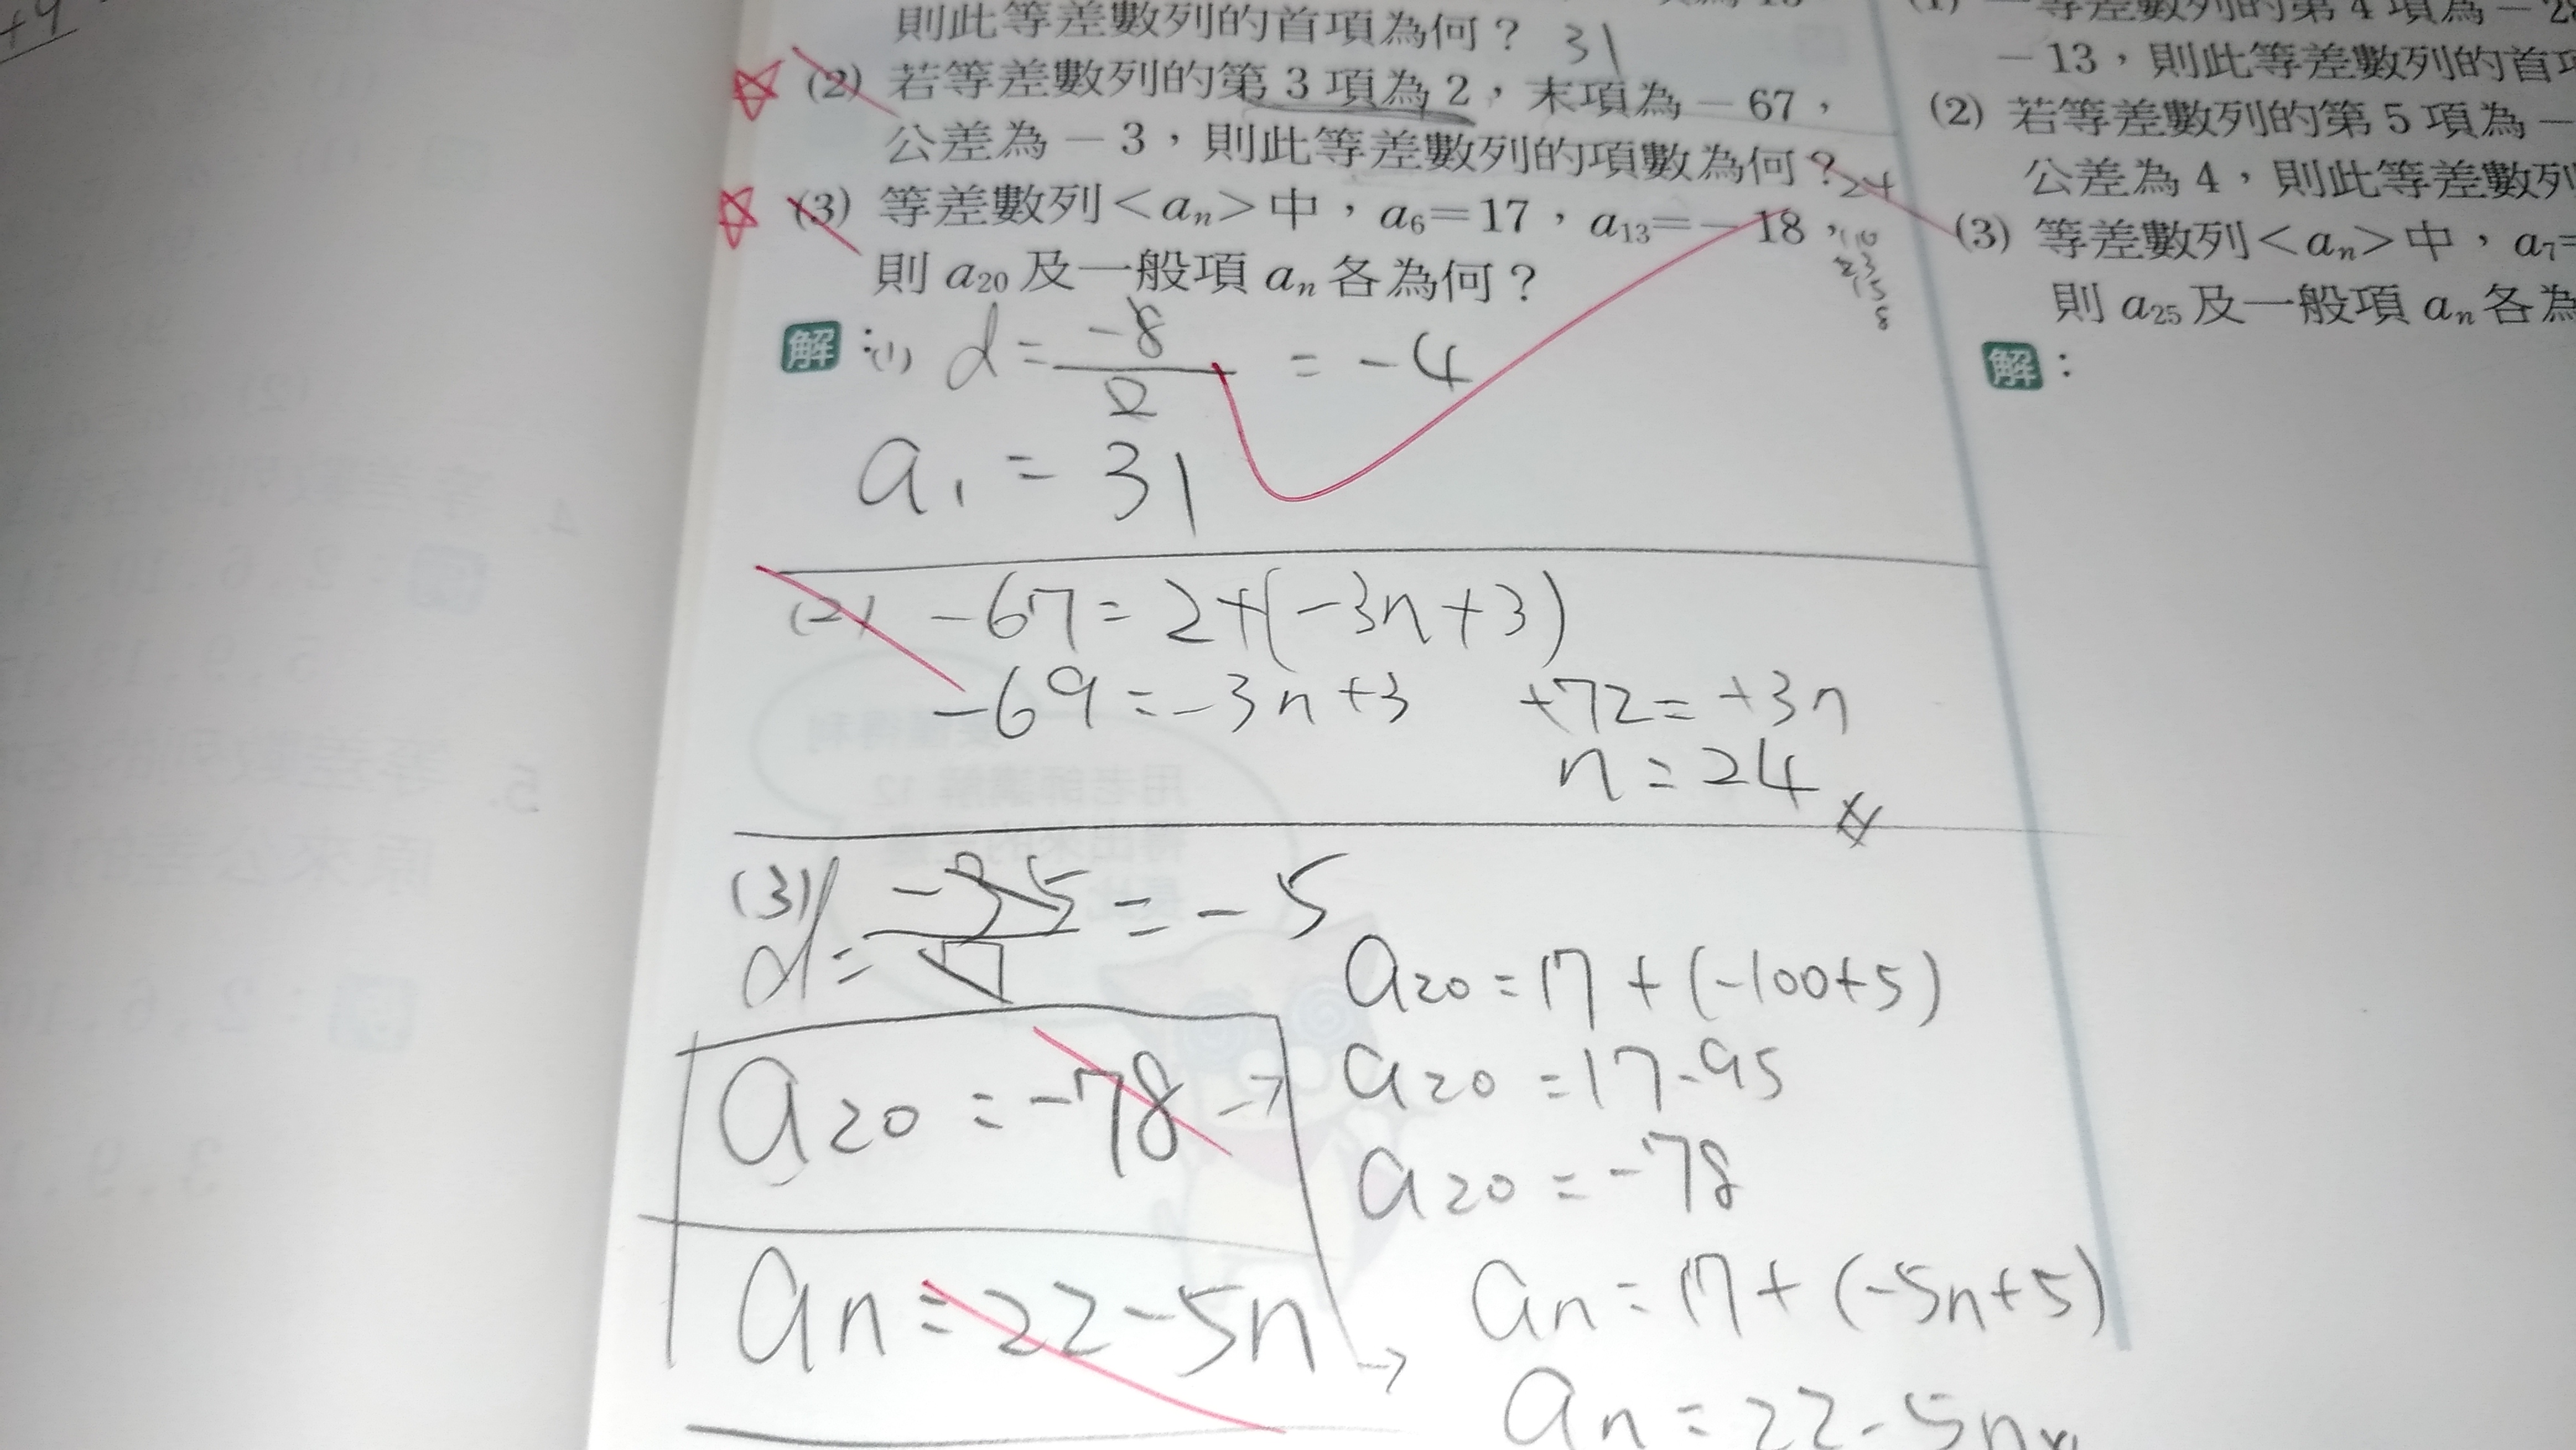 +9
則此等差數列的首項為何？ 31
(2) 若等差數列的第 3 項為 2，末項為－67，
公差為－3，則此等差數列的項數為何？ 24
(3) 等差數列＜a₆＞中，a₆＝17，a₁₃＝－18，
則 a₂₀ 及一般項 aₙ 各為何？
解：(1) d = -8/2 = -4
a₁ = 31
(2) -67 = 2+(-3n+3)
-69 = -3n+3 +72 = +3n
n = 24
(3)
d = -35/7 = -5
a₂₀ = 17 + (-100+5)
a₂₀ = -78 → a₂₀ = 17-95
a₂₀ = -78
aₙ = 22-5n → aₙ = 17 + (-5n+5)
aₙ = 22-5n
等差數列的第 4 項為－2
－13，則此等差數列的首項
(2) 若等差數列的第 5 項為－
公差為 4，則此等差數列
(3) 等差數列＜aₙ＞中，a₇＝
則 a₂₅ 及一般項 aₙ 各為
解：